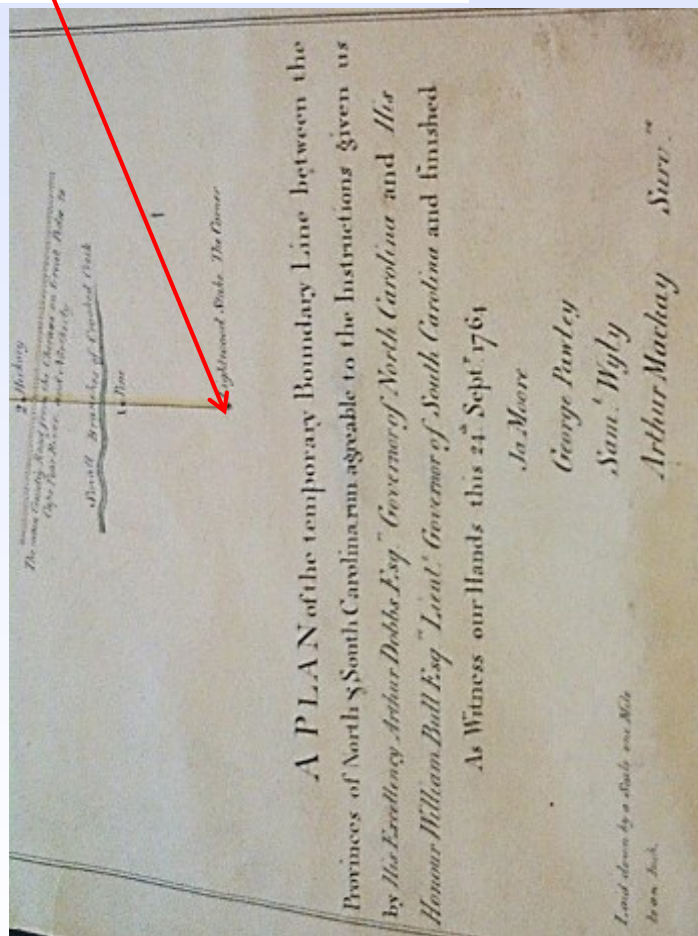 2 Hickory
The main County Road from the Cheraws on Great Pedee to
Cape Fear River and Northerly
Small Branches of Crooked Creek
1 Pine
Lightwood Stake The Corner
A PLAN of the temporary Boundary Line between the
Provinces of North & South Carolina run agreable to the Instructions given us
by His Excellency Arthur Dobbs Esqr. Governor of North Carolina and His
Honour William Bull Esqr. Lieut. Governor of South Carolina and finished
As Witness our Hands this 24th Septr. 1764
Ja Moore
George Pawley
Sam.l Wyly
Arthur Mackay
Survrs
Laid down by a Scale one Mile
to an Inch.